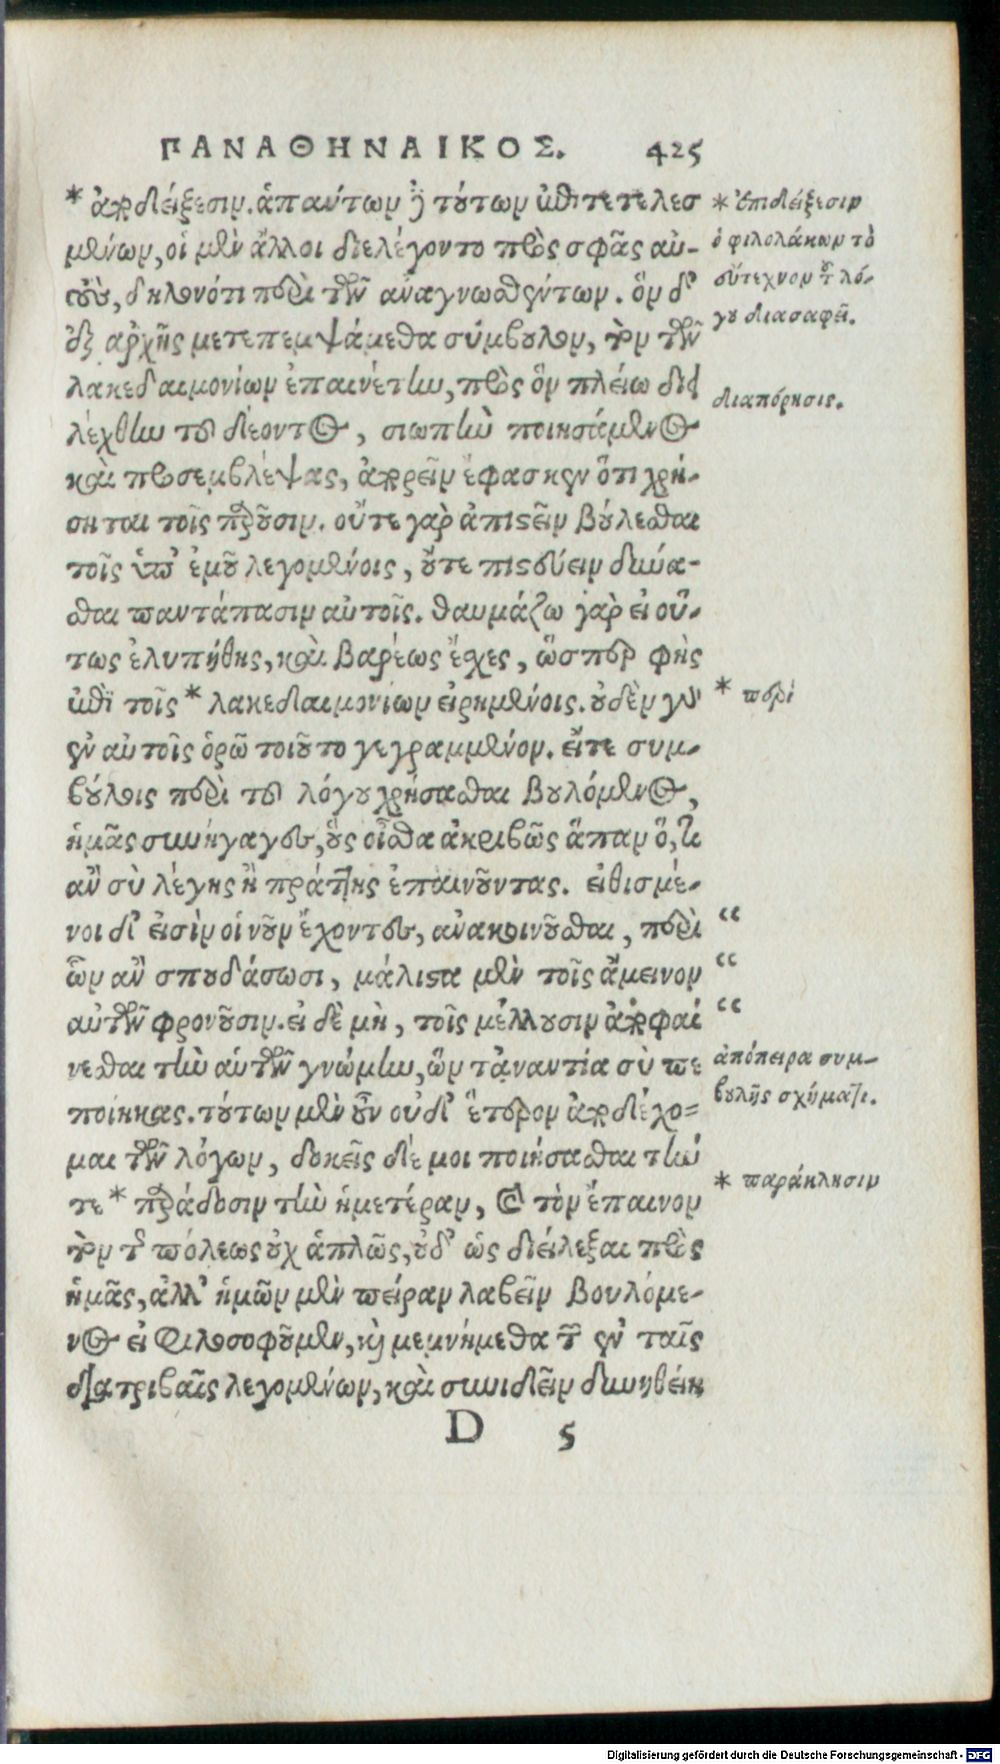 ΠΑΝΑΘΗΝΑΙΚΟΣ. 425
* ἀποδείξεσιν. ἁπάντων δὲ τούτων ἐπιτετελεσ
μένων, οἱ μὲν ἄλλοι διελέγοντο πρὸς σφᾶς αὐ-
τοὺς, δηλονότι περὶ τῶν ἀναγνωσθέντων. ὃν δ'
ἐξ ἀρχῆς μετεπεμψάμεθα σύμβουλον, τὸν τῶν
λακεδαιμονίων ἐπαινέτην, πρὸς ὃν πλείω διε
λέχθην τοῦ δέοντος, σιωπὴν ποιησάμενος
καὶ προσεμβλέψας, ἀπορεῖν ἔφασκεν ὅτι χρή-
σηται τοῖς παροῦσιν. οὔτε γὰρ ἀπιστεῖν βούλεσθαι
τοῖς ὑπ' ἐμοῦ λεγομένοις, οὔτε πιστεύειν δύνα-
σθαι παντάπασιν αὐτοῖς. θαυμάζω γὰρ εἰ οὕ-
τως ἐλυπήθης, καὶ βαρέως ἔχες, ὥσπερ φὴς
ἐπὶ τοῖς * λακεδαιμονίων εἰρημένοις. οὐδὲν γὰρ
ἐν αὐτοῖς ὁρῶ τοιοῦτο γεγραμμένον. εἴτε συμ-
βούλοις περὶ τοῦ λόγου χρήσασθαι βουλόμενος,
ἡμᾶς συνήγαγες, οὓς οἶσθα ἀκριβῶς ἅπαν ὅ,τι
ἂν σὺ λέγῃς ἢ πράττῃς ἐπαινοῦντας. εἰθισμέ-
νοι δ' εἰσὶν οἱ νοῦν ἔχοντες, ἀνακοινοῦσθαι, περὶ “
ὧν ἂν σπουδάσωσι, μάλιστα μὲν τοῖς ἄμεινον “
αὐτῶν φρονοῦσιν. εἰ δὲ μὴ, τοῖς μέλλουσιν ἀποφαί “
νεσθαι τὴν αὑτῶν γνώμην, ὧν τἀναντία σὺ πε
ποίηκας. τούτων μὲν οὖν οὐδ' ἕτερον ἀποδέχο=
μαι τῶν λόγων, δοκεῖς δέ μοι ποιήσασθαι τήν
τε * παράδοσιν τὴν ἡμετέραν, καὶ τὸν ἔπαινον
τὸν τῆς πόλεως οὐχ ἁπλῶς, οὐδ' ὡς διείλεξαι πρὸς
ἡμᾶς, ἀλλ' ἡμῶν μὲν πεῖραν λαβεῖν βουλόμε-
νος εἰ φιλοσοφοῦμεν, καὶ μεμνήμεθα τῶν ἐν ταῖς
διατριβαῖς λεγομένων, καὶ συνιδεῖν δυνηθείη
D 5
* ἐπιδείξεσιν
ὁ φιλολάκων τὸ
εὔτεχνον τοῦ λό-
γου διασαφεῖ.
διαπόρησις.
* περὶ
ἀπόπειρα συμ-
βουλῆς σχήματι.
* παράκλησιν
Digitalisierung gefördert durch die Deutsche Forschungsgemeinschaft - DFG